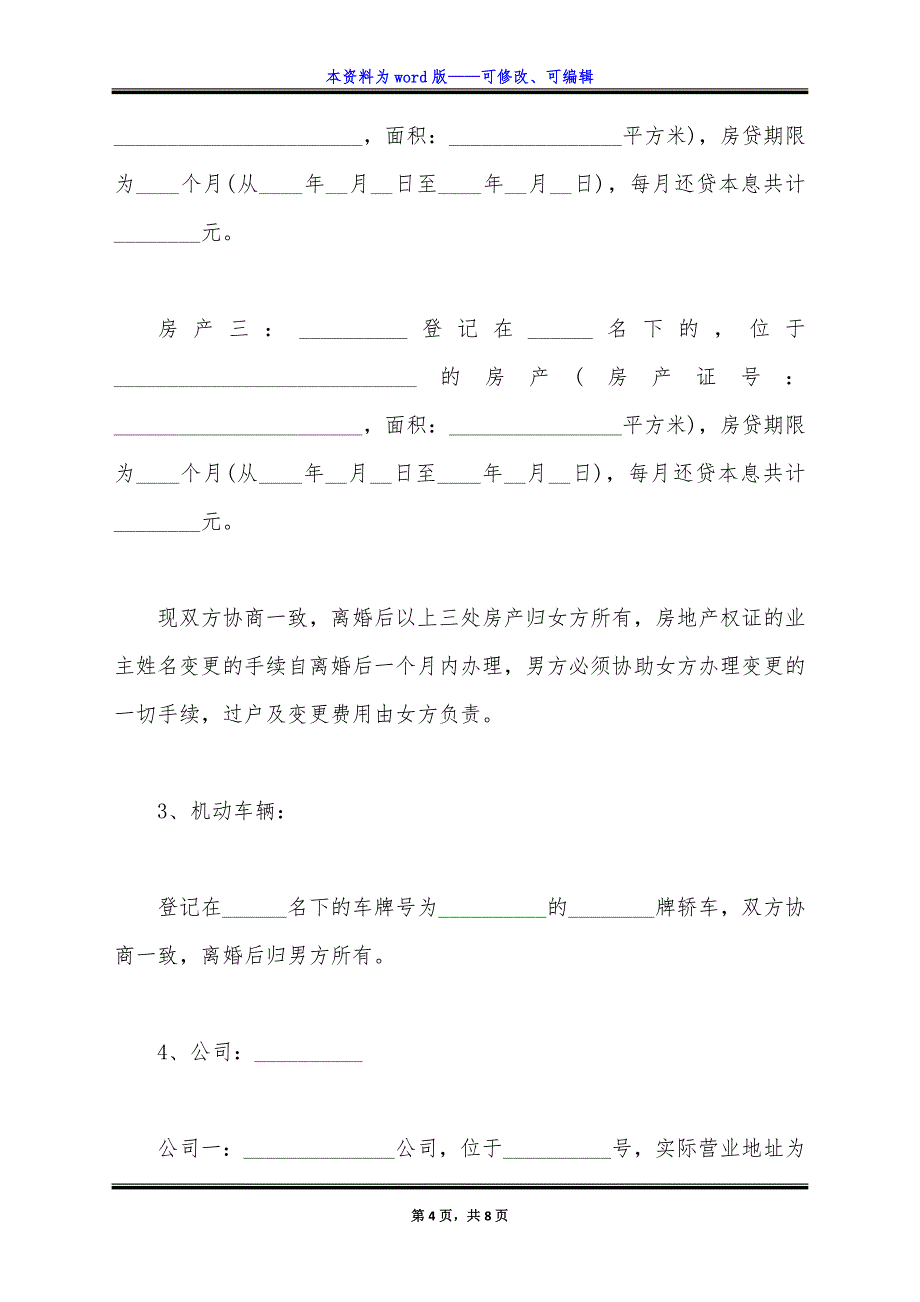 本资料为 word 版——可修改、可编辑
_______________________，面积：________________平方米)，房贷期限
为____个月(从____年__月__日至____年__月__日)，每月还贷本息共计
________元。
房产三：__________登记在______名下的，位于
____________________________的房产(房产证号：
_______________________，面积：________________平方米)，房贷期限
为____个月(从____年__月__日至____年__月__日)，每月还贷本息共计
________元。
现双方协商一致，离婚后以上三处房产归女方所有，房地产权证的业
主姓名变更的手续自离婚后一个月内办理，男方必须协助女方办理变更的
一切手续，过户及变更费用由女方负责。
3、机动车辆：
登记在______名下的车牌号为__________的________牌轿车，双方协
商一致，离婚后归男方所有。
4、公司：__________
公司一：______________公司，位于__________号，实际营业地址为
第 4 页，共 8 页